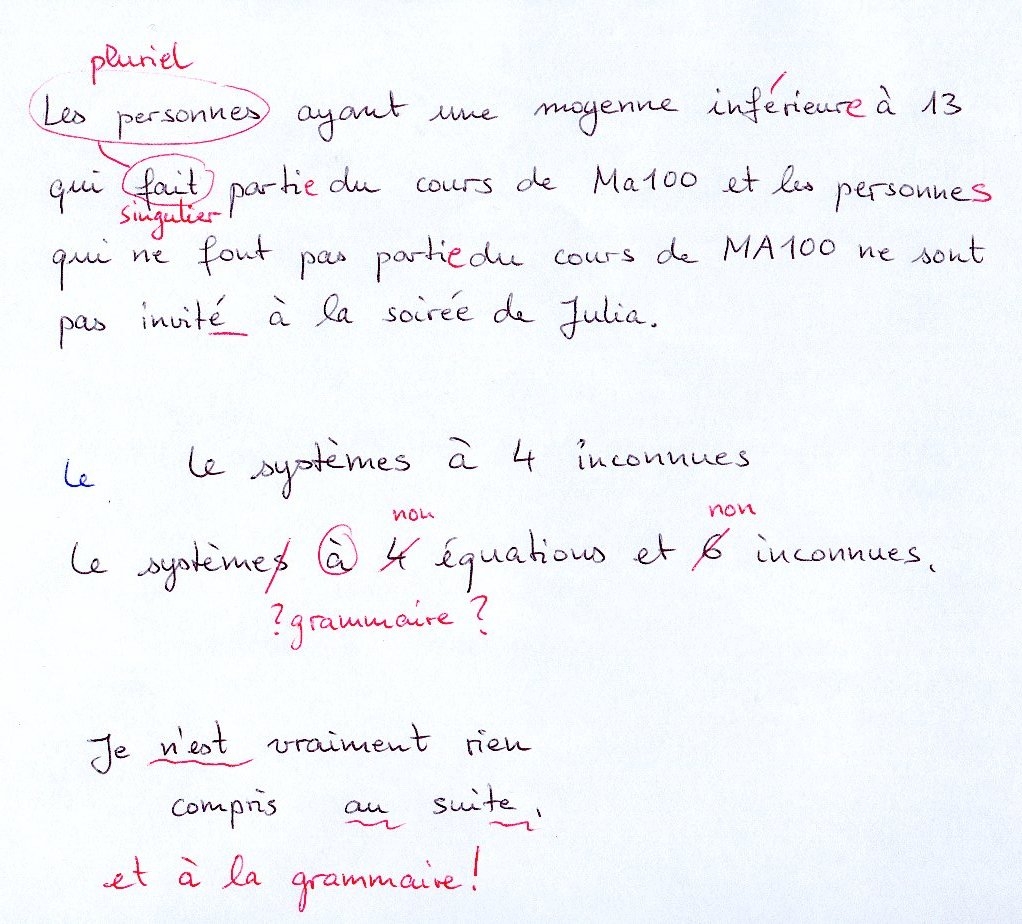 pluriel
Les personnes ayant une moyenne inférieure à 13
qui fait partie du cours de Ma100 et les personnes
singulier
qui ne font pas partie du cours de MA100 ne sont
pas invité à la soirée de Julia.
Le systèmes à 4 inconnues
Le
non non
Le systèmes à 4 équations et 6 inconnues.
? grammaire ?
Je n'est vraiment rien
compris au suite.
et à la grammaire !